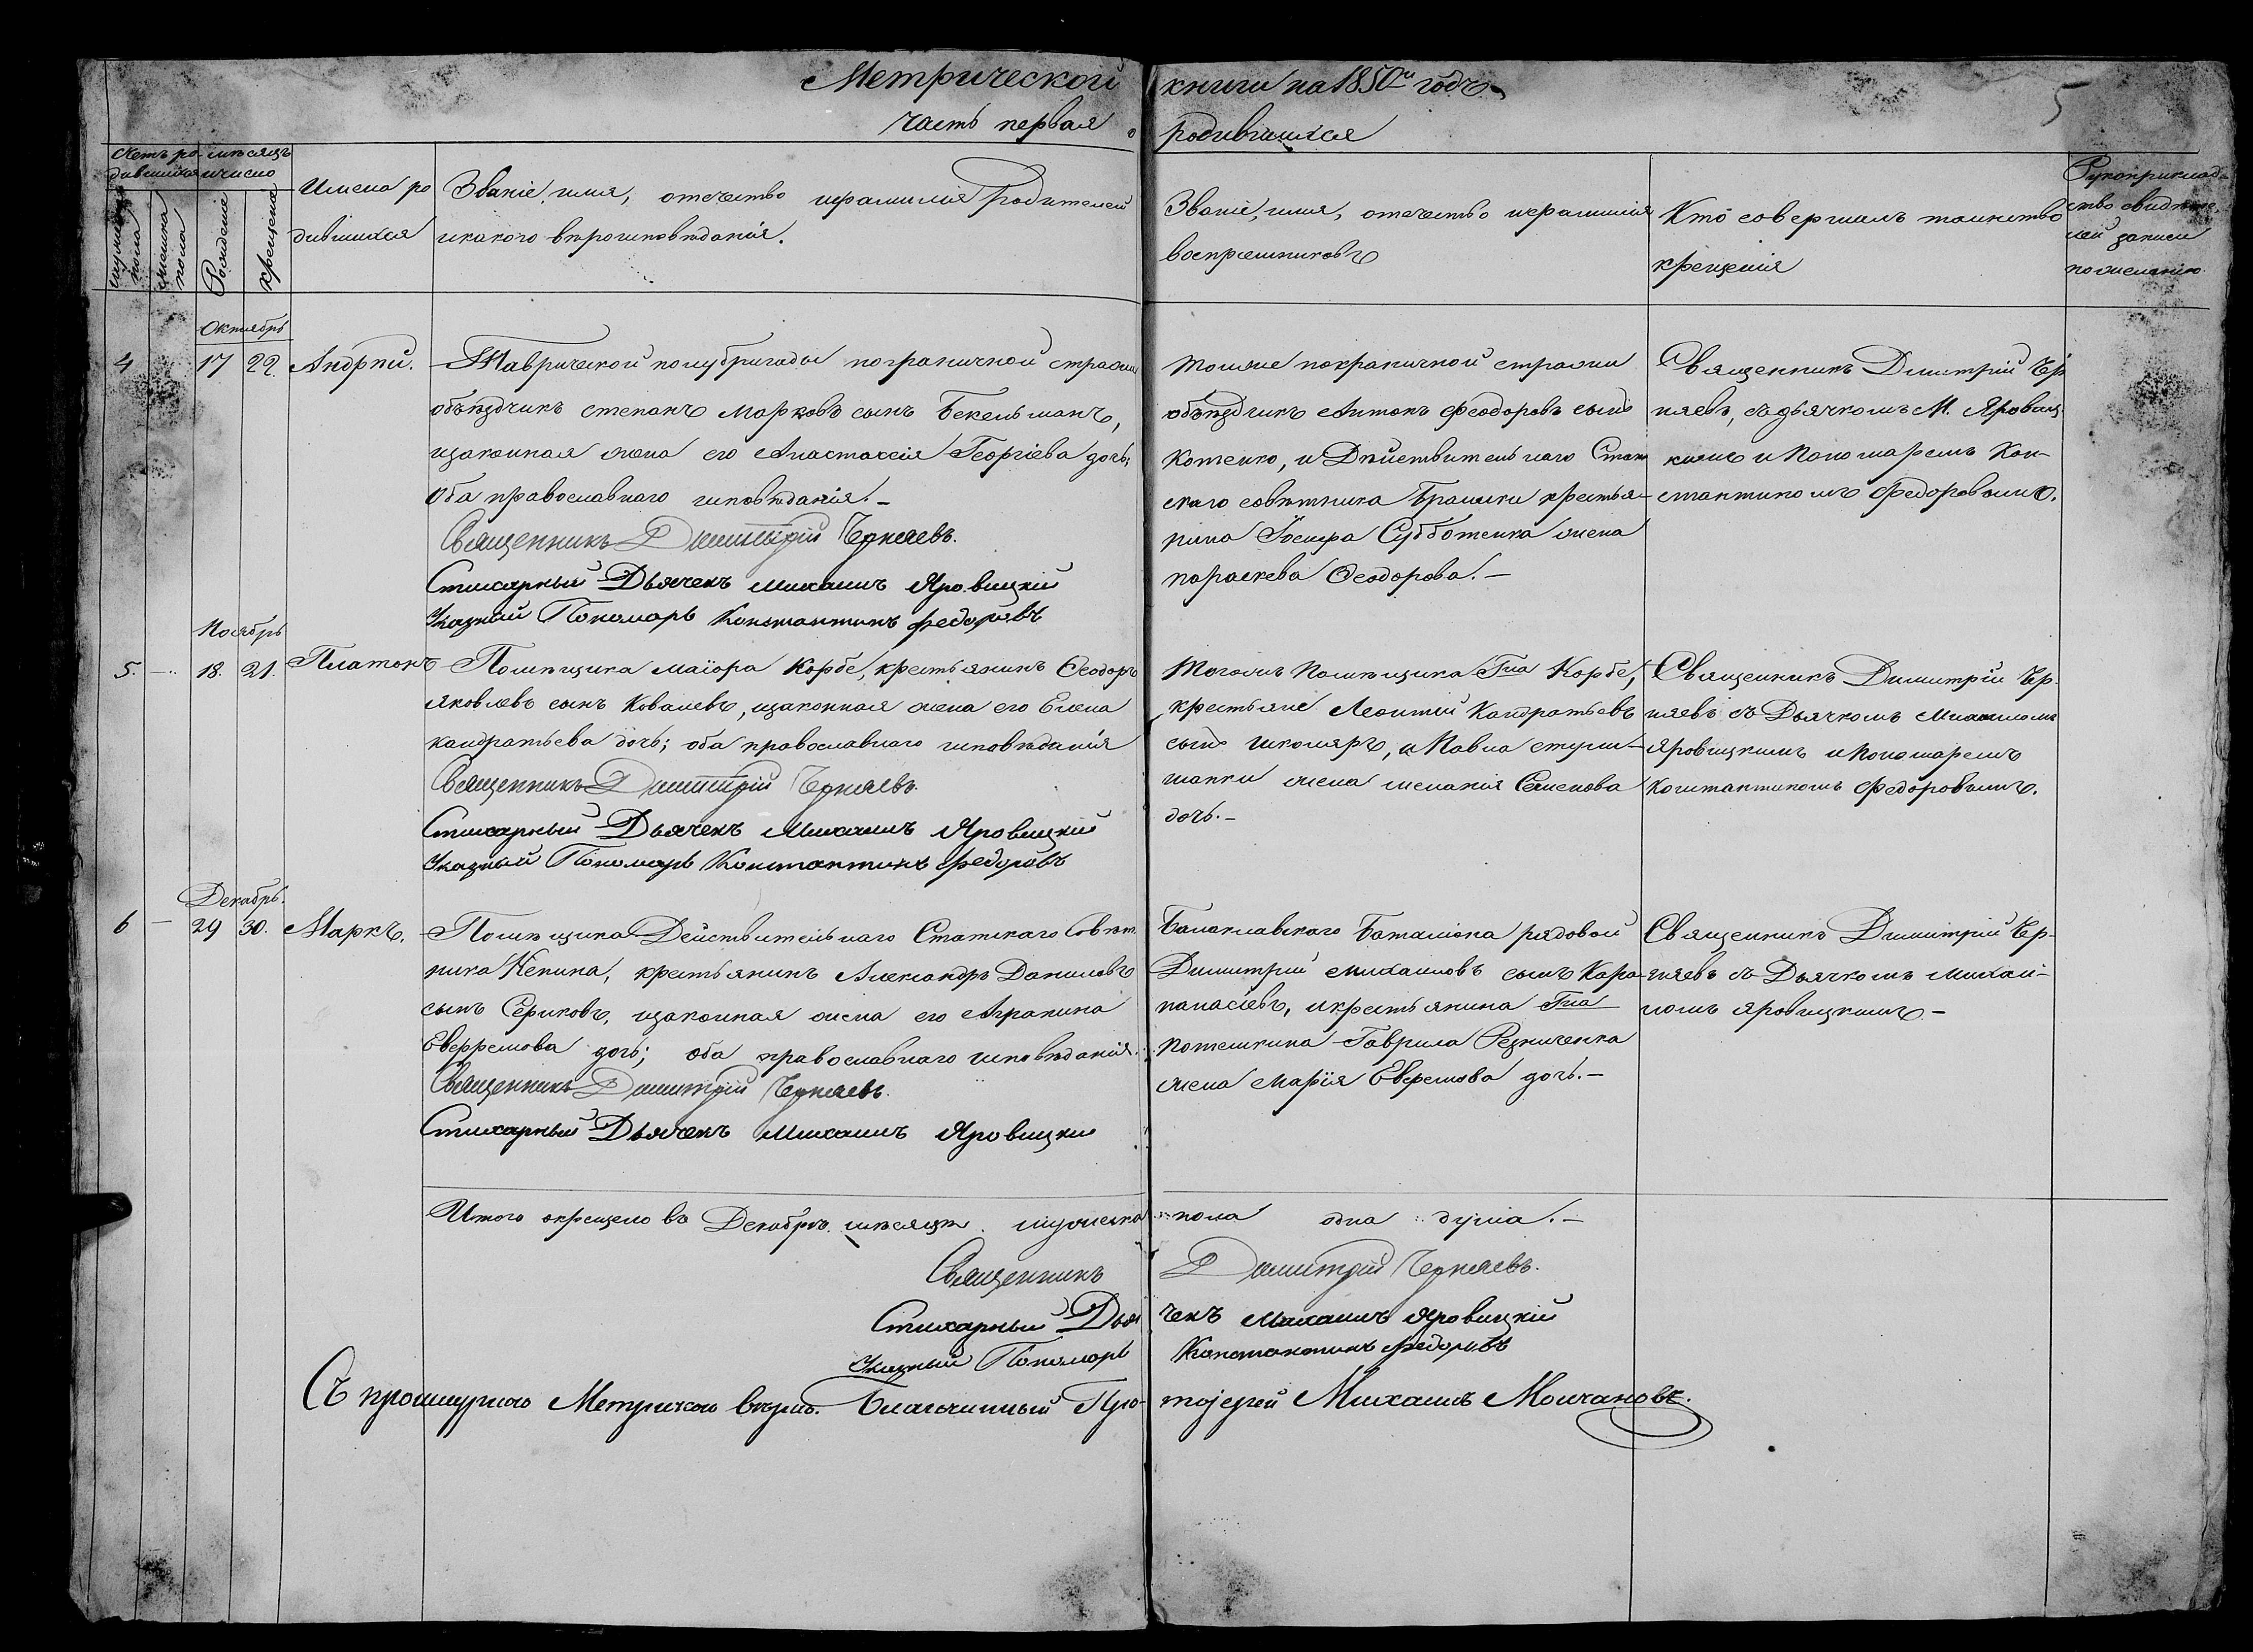 Метрической книги на 1850й годъ
5
часть первая о родившихся
Счетъ ро дившихся
мѣсяцъ и число
мужеска пола
женска пола
Рожденіе
крещеніе
Имена ро
дившихся
Званіе, имя, отчество и фамилія родителей
и какого вѣроисповѣданія.
Званіе, имя, отчество и фамилія
воспріемниковъ
Кто совершалъ таинство
крещенія
Рукоприклад-
ство свидѣте-
лей записи
по желанію
Октябрь
4 17 22 Андрѣй.
Таврической полубригады пограничной стражи
объѣздчикъ степанъ Марковъ сынъ Бекельманъ,
и законная жена его Анастасія Георгіева дочь;
Оба православнаго исповѣданія. –
Священникъ Димитрій Черняевъ.
Стихарный Дьячекъ Михаилъ Яровицкій
Указный Пономарь Константинъ Федоровъ
Тойже пограничной стражи
объѣздчикъ Антонъ Феодоровъ сынъ
Котенко, и Дѣйствительнаго Стат
скаго совѣтника Браилки крестья-
нина Іосифа Субботенка жена
параскева Ѳеодорова. –
Священникъ Димитрій Чер
няевъ, съ дьячкомъ М. Яровиц
кимъ и Пономаремъ Кон-
стантиномъ Федоровымъ.
Ноябрь
5. – 18. 21. Платонъ
Помѣщика маіора Корбе, крестьянинъ Ѳеодоръ
яковлевъ сынъ Ковалевъ, и законная жена его Елена
кандратьева дочь; оба православнаго исповѣданія
Священникъ Димитрій Черняевъ.
Стихарный Дьячекъ Михаилъ Яровицкій
Указный Пономарь Константинъ Федоровъ
Тогожъ Помѣщика Гна Корбе,
крестьяне Леонтій Кандратьевъ
сынъ школяръ, и Павла
жена меланія Семенова
дочь. –
Священникъ Димитрій Чер
няевъ съ Дьячкомъ Михаиломъ
Яровицкимъ и Пономаремъ
Константиномъ Федоровымъ.
Декабрь.
6 – 29 30. Маркъ.
Помѣщика Действительнаго Статскаго Совѣт
ника крестьянинъ Александръ Даниловъ
сынъ Сериковъ, и законная жена его Агрипина
Евфремова дочь; оба православнаго исповѣданія.
Священникъ Димитрій Черняевъ.
Стихарный Дьячекъ Михаилъ Яровицкій
Балаклавскаго Баталіона рядовой
Димитрій михаиловъ сынъ Кара-
панасіевъ, и крестьянина Гна
Потемкина Гаврила Резниченка
жена Марія Евремова дочь. –
Священникъ Димитрій Чер-
няевъ съ Дьячкомъ Михаи-
ломъ яровицкимъ –
Итого окрещено въ Декабрѣ мѣсяцѣ мужеска пола одна душа. –
Священникъ Димитрій Черняевъ.
Стихарный Дьячекъ Михаилъ Яровицкій
Указный Пономарь Константинъ Федоровъ
Съ прошнурною Метрикою вѣрно. Благочинный Протоіерей Михаилъ Молчановъ.